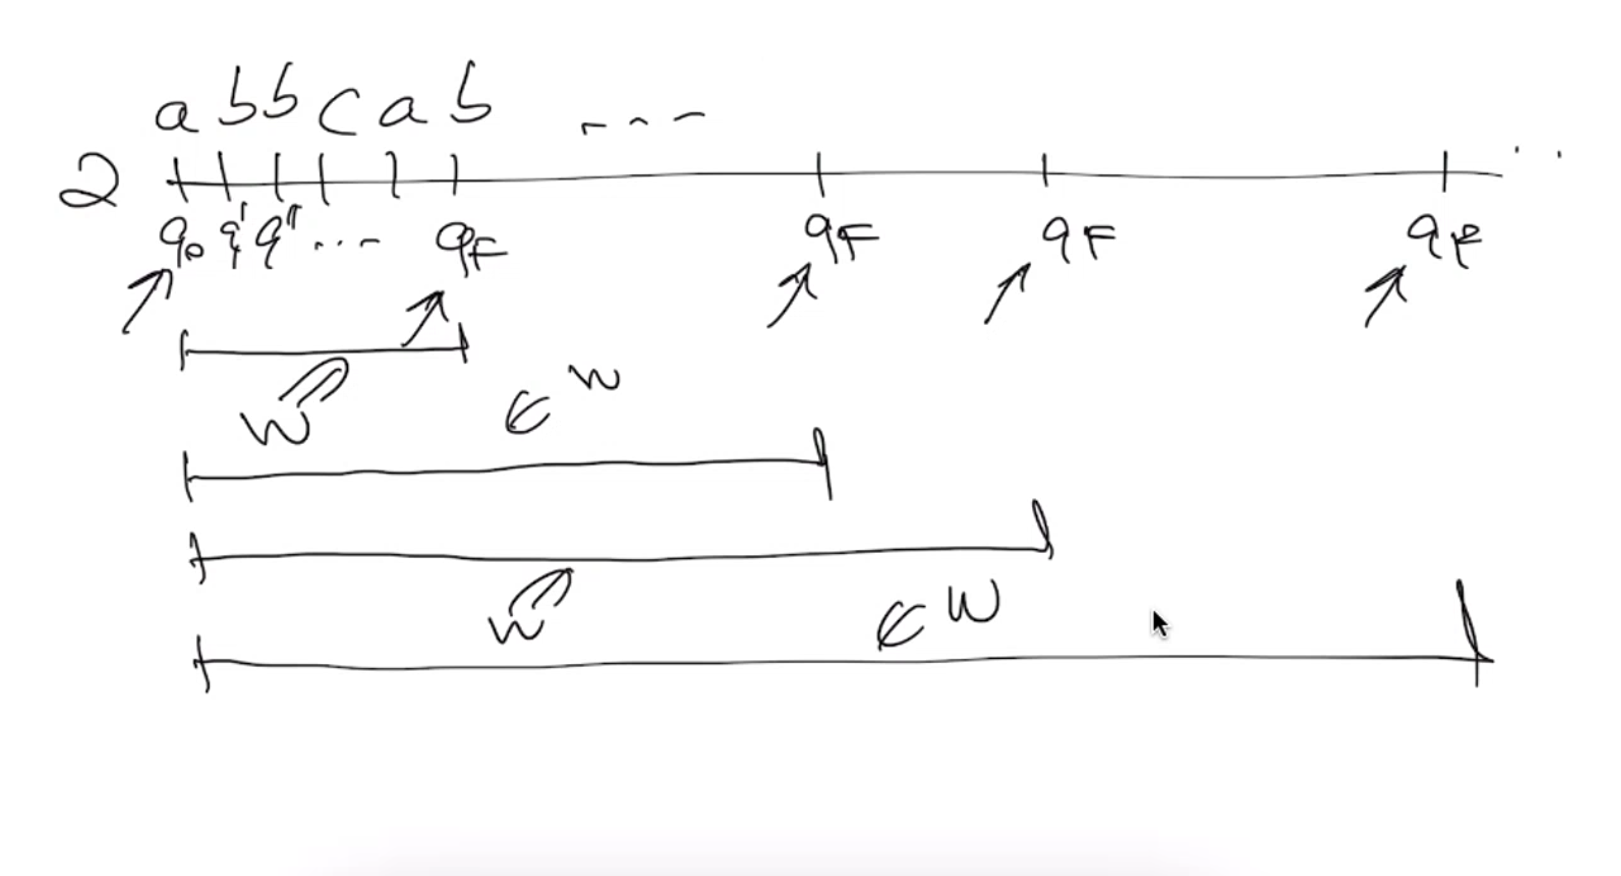 a b b c a b ---
2 ..
q₀ q' q'' ... q_F q_F q_F q_F
w ∈ W
w ∈ W